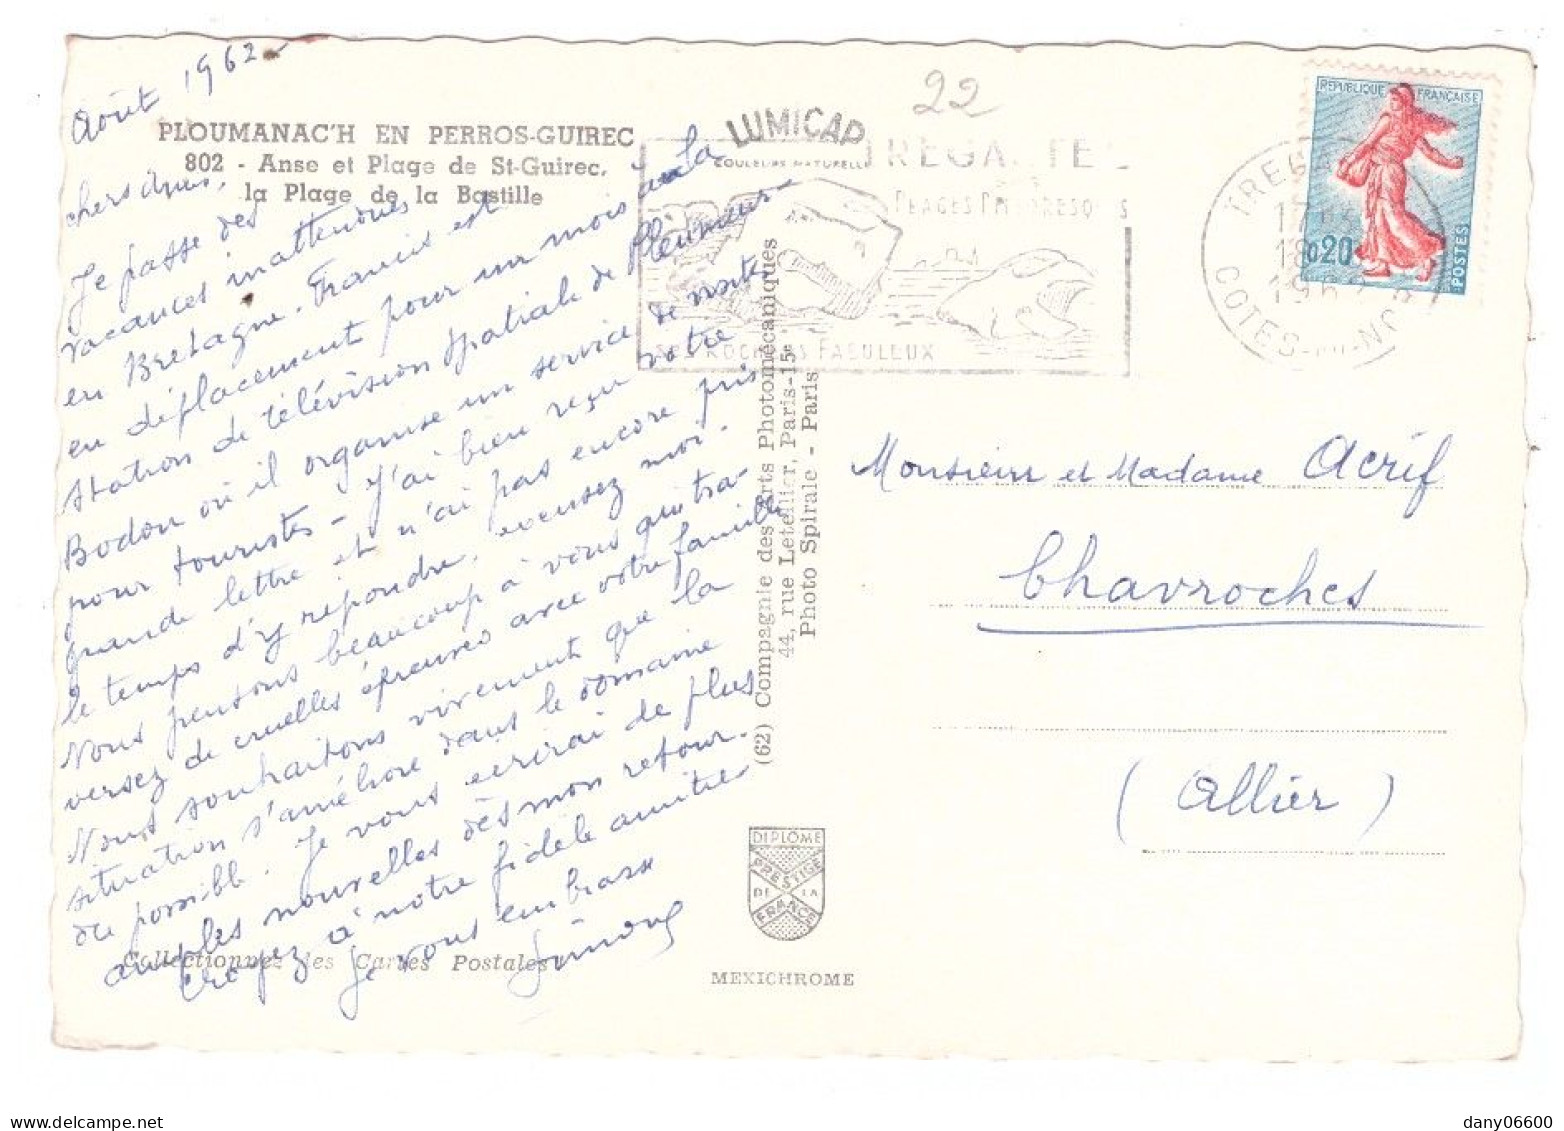 Août 1962
PLOUMANAC'H EN PERROS-GUIREC
802 - Anse et Plage de St-Guirec,
la Plage de la Bastille
LUMICAP
COULEURS NATURELLES
22
chers amis,
Je passe des
vacances inattendues
en Bretagne. Francis est
en déplacement pour un mois à la
station de télévision spatiale de Pleumeur-
Bodou où il organise un service de visite
pour touristes - J'ai bien reçu votre
grande lettre et n'ai pas encore pris
le temps d'y répondre, excusez moi.
Nous pensons beaucoup à vous qui tra-
versez de cruelles épreuves avec votre famille
Nous souhaitons vivement que la
situation s'améliore dans le domaine
du possible. Je vous écrirai de plus
amples nouvelles dès mon retour.
Croyez à notre fidèle amitié
Je vous embrasse
Simone
Collectionnez les Cartes Postales
(62) Compagnie des Arts Photomécaniques
44, rue Letellier, Paris-15e
Photo Spirale - Paris
DIPLOME
PRESTIGE
DE LA
FRANCE
MEXICHROME
TREGASTEL
PLAGES PITTORESQUES
SES ROCHERS FABULEUX
COTES-DU-NORD
REPUBLIQUE FRANÇAISE
0,20
POSTES
Monsieur et Madame Acrif
Chavroches
(Allier)
dany06600